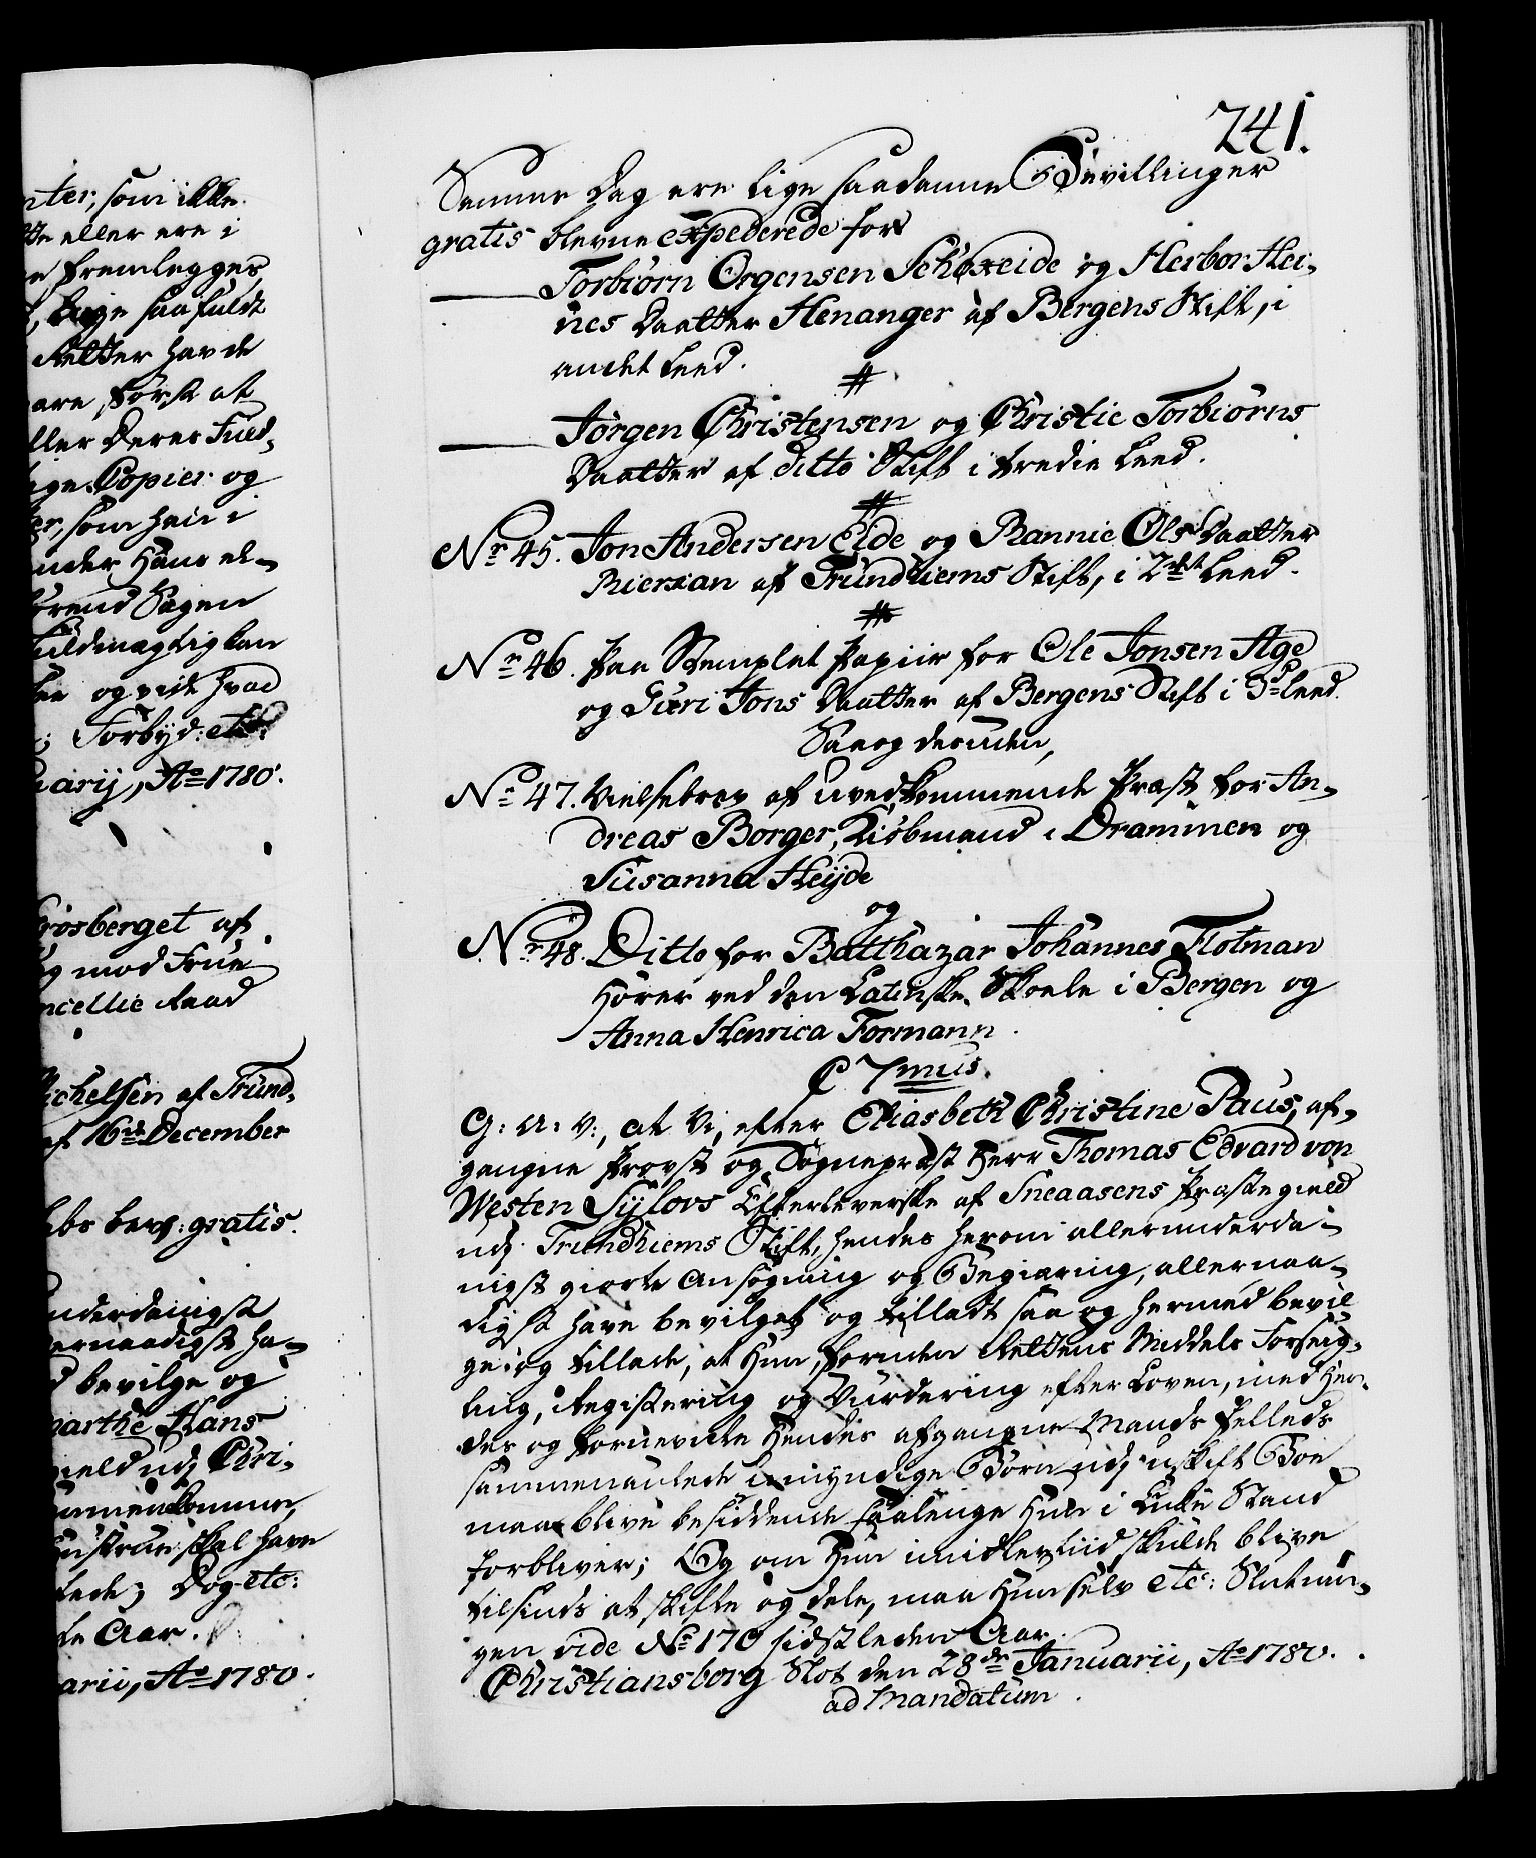 nter, som ikke
tte eller ere i
e fremlegges
, bage saafuldt
Retter havde
are, først at
ller Deres Fuld,
ige Copier og
er, som han i
nder Hans el-
ørend Sagen
fuldmægtig kan
see og vide hvad
; Forbyd: etc:
uarij, Ao 1780.
rosberget af
g mod Frue
ncellie Raad
Michelsen af Trund,
af 16de December
bs bev: gratis.
nderdanigst
ernaadigst ha-
d bevilge og
Marthe Hans
gield udj Chri,
ammenkomme,
Hustrue skal have
tede; Dog etc:
te Aar.
arii, Ao 1780.
241.
Samme Dag ere lige saadanne Bevillinger
gratis blevne expederede for
Torbiørn Orgensen Schoxeide og Herbor Hei,
nes Daatter Henanger af Bergens Stift, i
andet Leed.
Jørgen Christensen og Christie Torbiørns
Daatter af ditto Stift i tredie Leed.
No 45. Jon Andersen Eide og Rannie Ols Daatter
Bierxan af Trundhiems Stift, i 2det Leed.
No 46. Paa Stemplet Papiir for Ole Jonsen Age
og Guri Jons Daatter af Bergens Stift i 3die Leed.
Saaog desuden,
No 47. Vielsebrev af uvedkommende Præst for An-
dreas Borger, Kiøbmand i Drammen og
Susanna Heyde
og
No 48. Ditto for Balthazar Johannes Flotman
Hører ved den Latinske Skoele i Bergen og
Anna Henrica Formann.
C 7mus.
G: A: V:, at Vi, efter Eliasbeth Christine Paus, af-
gangne Provst og Sognepræst Herr Thomas Edvard von
Westen Sylovs Efterleverske af Sneaasens Præstegield
udj Trundhiems Stift, hendes herom allerunderda-
nigst giorte Ansøgning og Begiæring, allernaa-
digst have bevilget og tilladt saa og hermed bevil
ge og tillade, at Hun, foruden Rettens Middels Forseig-
ling, Registering og Vurdering efter Loven, med Hen-
des og forneventte Hendes afgangne Mands fælleds
sammenavlede umyndige Børn udj uskift Boe
maa blive besiddende saalenge Hun i Enke Stand
forbliver; Og om Hun imidlertiid skulde blive
tilsinds at skifte og dele, maa Hun selv etc: Slutnin-
gen vide No 170 sidstleden Aar.
Christiansborg Slot den 28de Januarii, Ao 1780.
ad Mandatum.